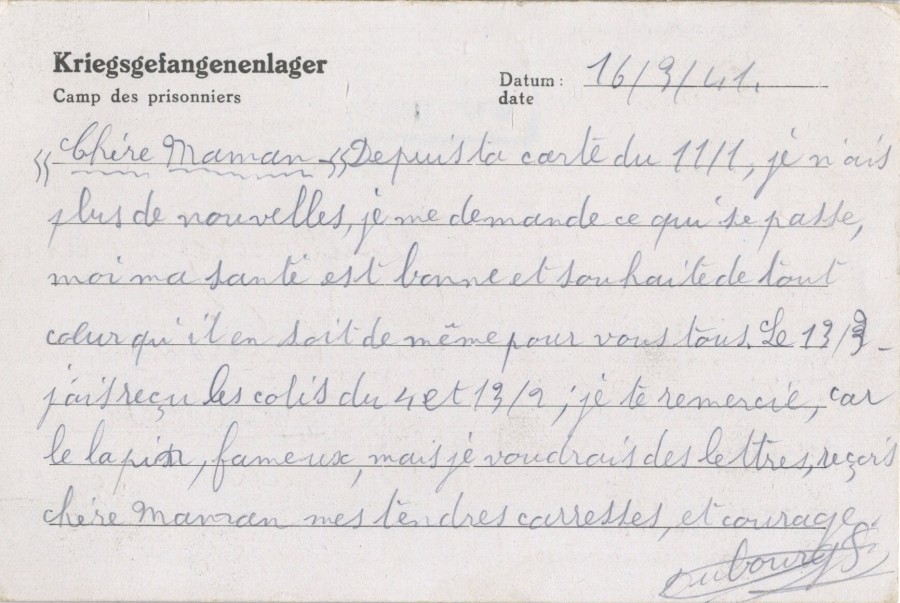 Kriegsgefangenenlager
Camp des prisonniers
Datum: 16/3/41.
date
"Chère Maman" Depuis ta carte du 11/1, je n'ais
plus de nouvelles, je me demande ce qu'il se passe,
moi ma santé est bonne et souhaite de tout
cœur qu'il en soit de même pour vous tous. Le 13/3
j'ais reçu les colis du 4 et 13/2; je te remercie, car
le lapin, fameux, mais je voudrais des lettres, reçois
chère Maman mes tendres carresses, et courage.
Dubourg S.